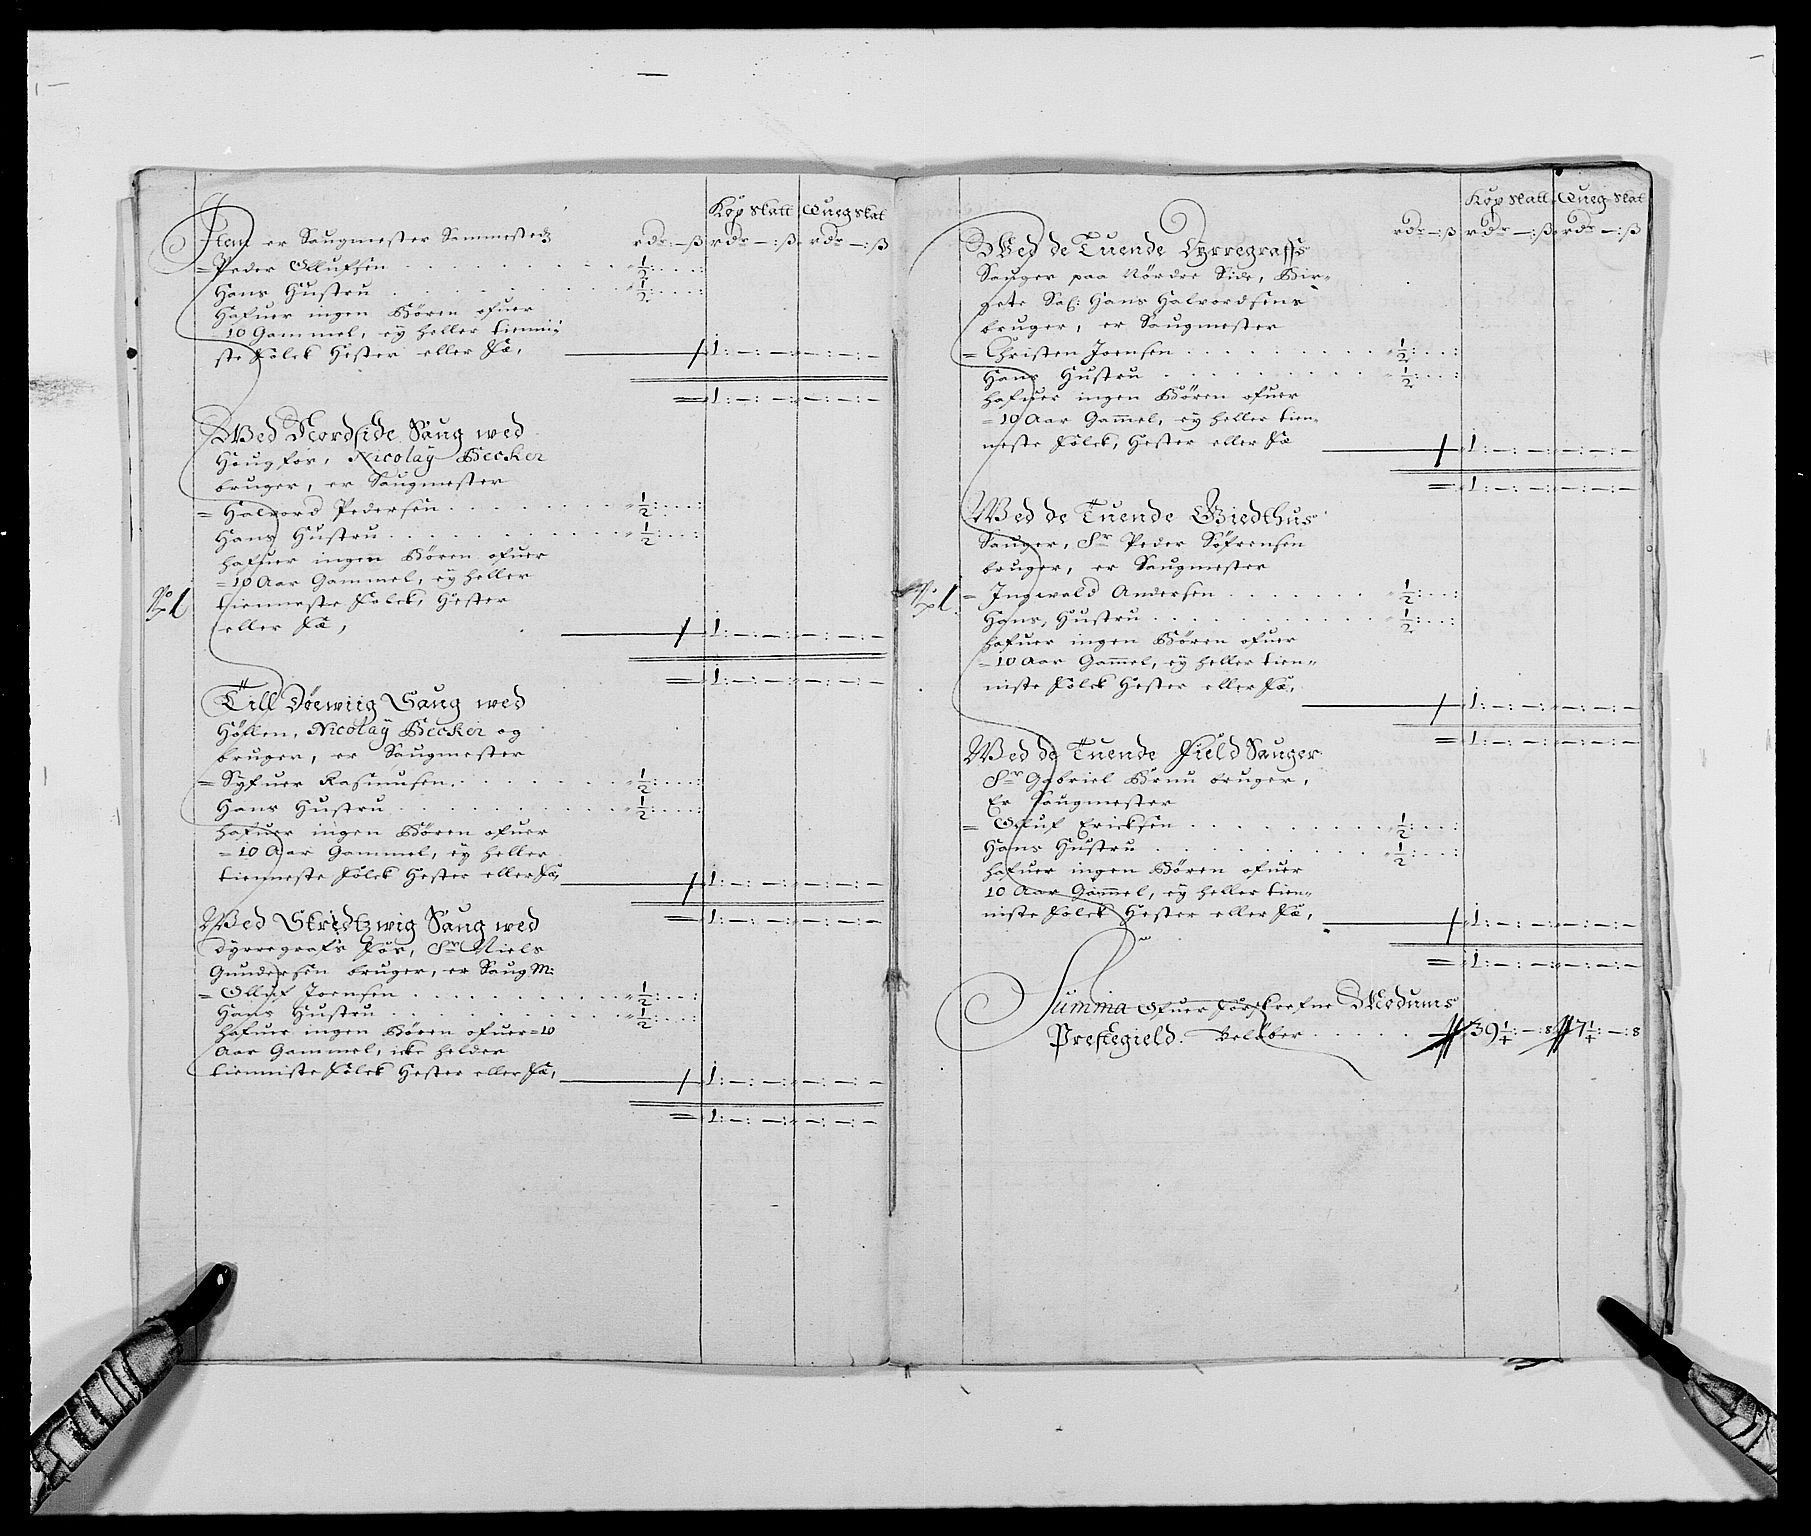 Kop skatt Queg skat
Item er Saugmester Sammesteds rdr — ß rdr — : ß rdr — : ß
= Peder Ollufsen . . . . . . . . ½ : . . . :
Hans Hustru . . . . . . . . ½ : . . . :
Hafuer ingen Bören ofuer
10 Gammel, eÿ heller tienni=
ste Folck Hester eller Fä, 1 1 : — : — : — : — : —
= 1 : — : — : — : — : —
Wed Nordside Saug wed
Hougfos, Nicolaÿ Becker
bruger, er Saugmester
= Halvord Pedersen . . . . . . . ½ : . . . :
Hans Hustru . . . . . . . . ½ : . . . :
hafuer ingen Bören ofuer
= 10 Aar Gammel, eÿ heller
tienneste Folck, Hester
No 1
eller Fä, 1 1 : — : — : — : — : —
= 1 : — : — : — : — : —
Till Döewiig Saug wed
Höllen, Nicolaÿ Becker og
bruger, er Saugmester
= Syfuer Rasmusen . . . . . . ½ : . . . :
Hans Hustru . . . . . . . . ½ : . . . :
hafuer ingen Bören ofuer
= 10 Aar Gammel, eÿ heller
tienneste Folck Hester eller Fä, 1 1 : — : — : — : — : —
= 1 : — : — : — : — : —
Wed Skredtzwig Saug wed
dÿrregrafs Fos, Sr Niels
Gundersen bruger, er Saug M:
= Olluf Joensen . . . . . . . . ½ : . . . :
Hans Hustru . . . . . . . . ½ : . . . :
hafuer ingen Bören ofuer = 10
Aar Gammel, icke helder
tienniste Folck Hester eller Fä, 1 1 : — : — : — : — : —
= 1 : — : — : — : — : —
Kop skatt Queg skat
rdr — : ß rdr — : ß rdr — : ß
Wed de Tuende Dyrregraffs
Sauger paa Nordre Side, Bir=
gete Sal: Hans Halvordsens
bruger, er Saugmester
= Christen Joensen . . . . . . . ½ : . . . :
Hans Hustru . . . . . . . . ½ : . . . :
hafuer ingen Bören ofuer
= 10 Aar Gammel, eÿ heller tien=
neste Folck, Hester eller Fä 1 1 : — : — : — : — : —
= 1 : — : — : — : — : —
Wed de Tuende Giedthus
Sauger, Sr Peder Söfrensen
bruger, er Saugmester
No 1.
= Ingewald Andersen . . . . . . ½ : . . . :
Hans, Hustru . . . . . . . . ½ : . . . :
hafuer ingen Bören ofuer
= 10 Aar Gammel, eÿ heller tien=
niste Folck Hester eller Fä, 1 1 : — : — : — : — : —
= 1 : — : — : — : — : —
Wed de Tuende Field Sauger
Sr Gabriel bruger,
Er Saugmester
= Olluf Ericksen . . . . . . . . ½ : . . . :
Hans Hustru . . . . . . . . ½ : . . . :
hafuer ingen Bören ofuer
10 Aar Gammel, eÿ heller tien=
niste Folck Hester eller Fä, 1 1 : — : — : — : — : —
= 1 : — : — : — : — : —
Summa Ofuer Forskrefne Modums
Prestegield. Beløber . . . . . 39¼ : — : ß 7¼ : — : ß